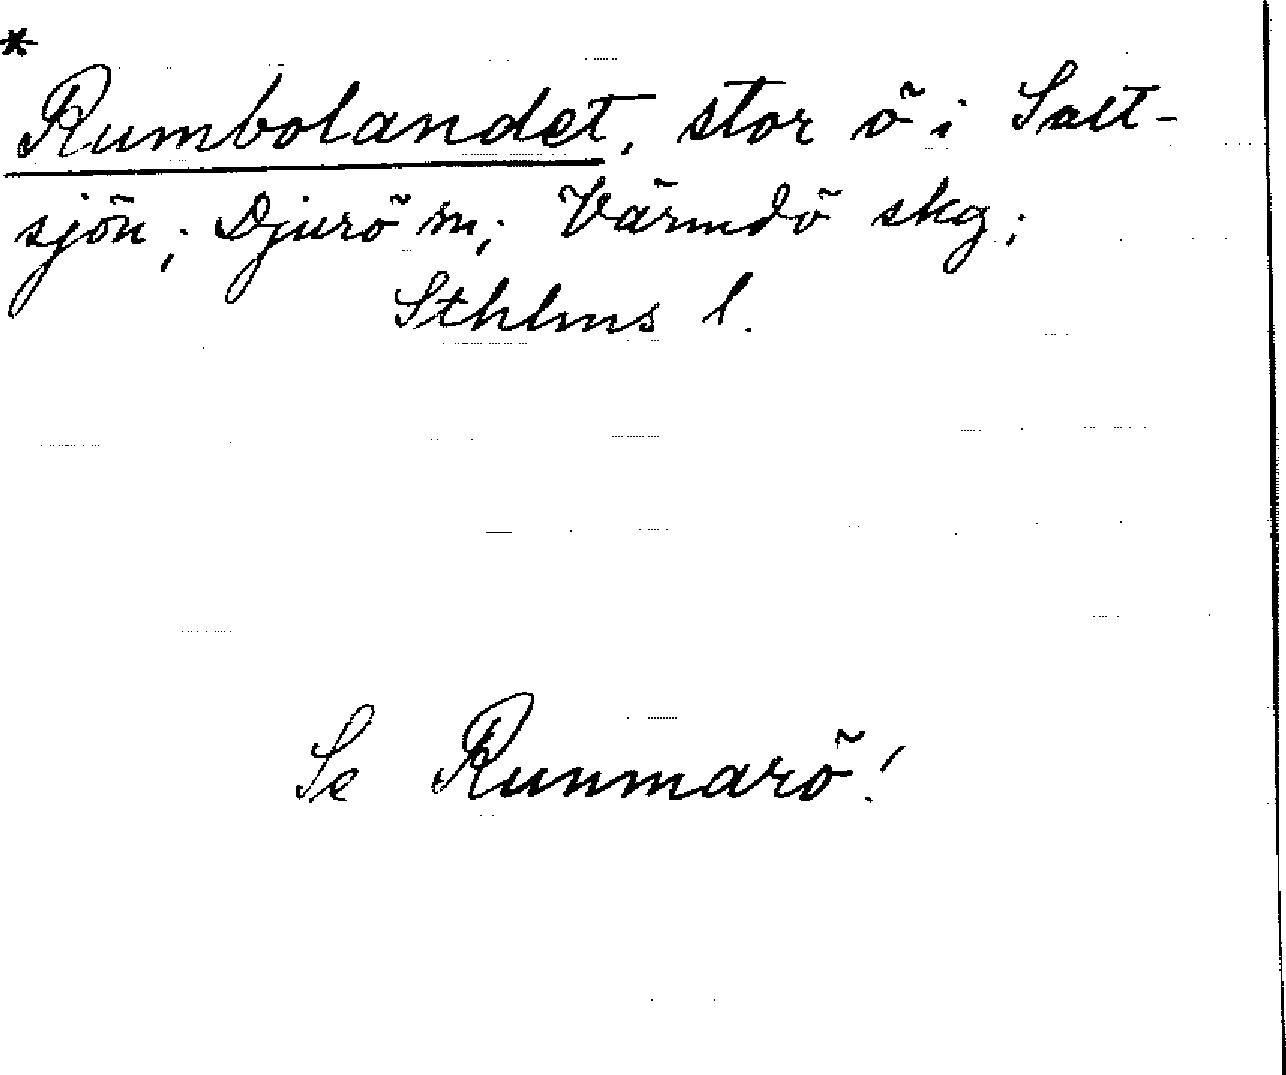 *
Rumbolandet, stor ö i Salt-
sjön; Djurö sn; Värmdö skg;
Sthlms l.
Se Runmarö!